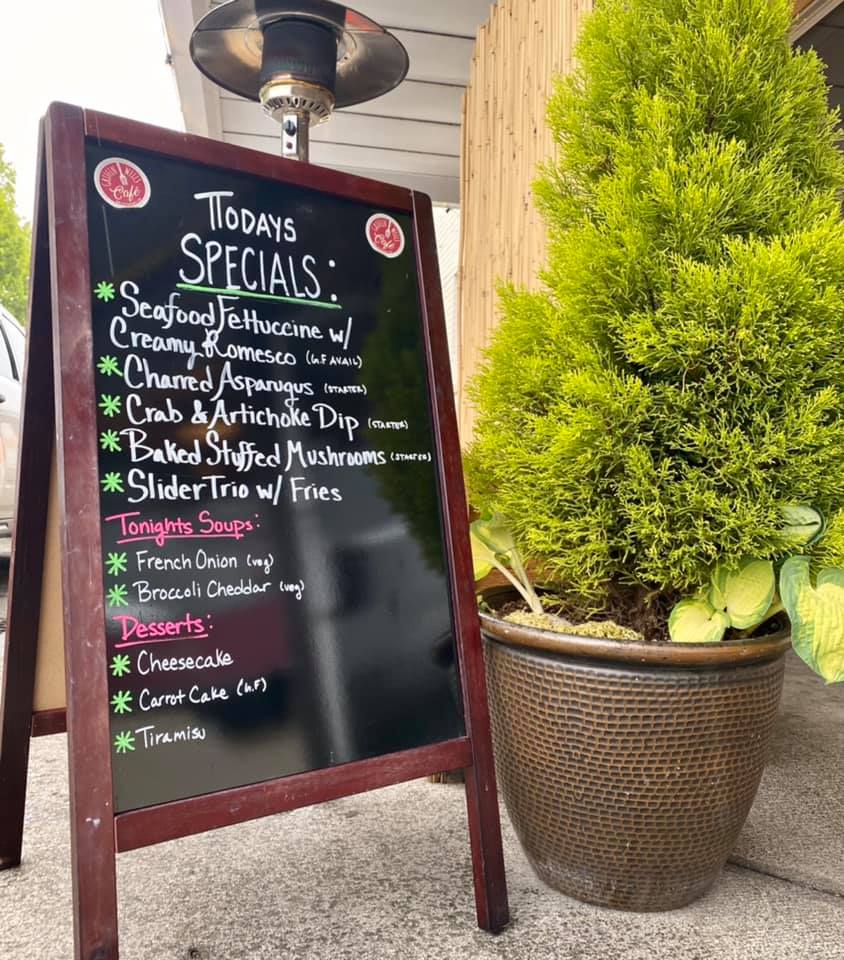 Café
Café
TODAYS
SPECIALS:
* Seafood Fettuccine w/
Creamy Romesco (G.F AVAIL)
* Charred Asparagus (STARTER)
* Crab & Artichoke Dip (STARTER)
* Baked Stuffed Mushrooms (STARTER)
* Slider Trio w/ Fries
Tonights Soups:
* French Onion (veg)
* Broccoli Cheddar (veg)
Desserts:
* Cheesecake
* Carrot Cake (G.F)
* Tiramisu